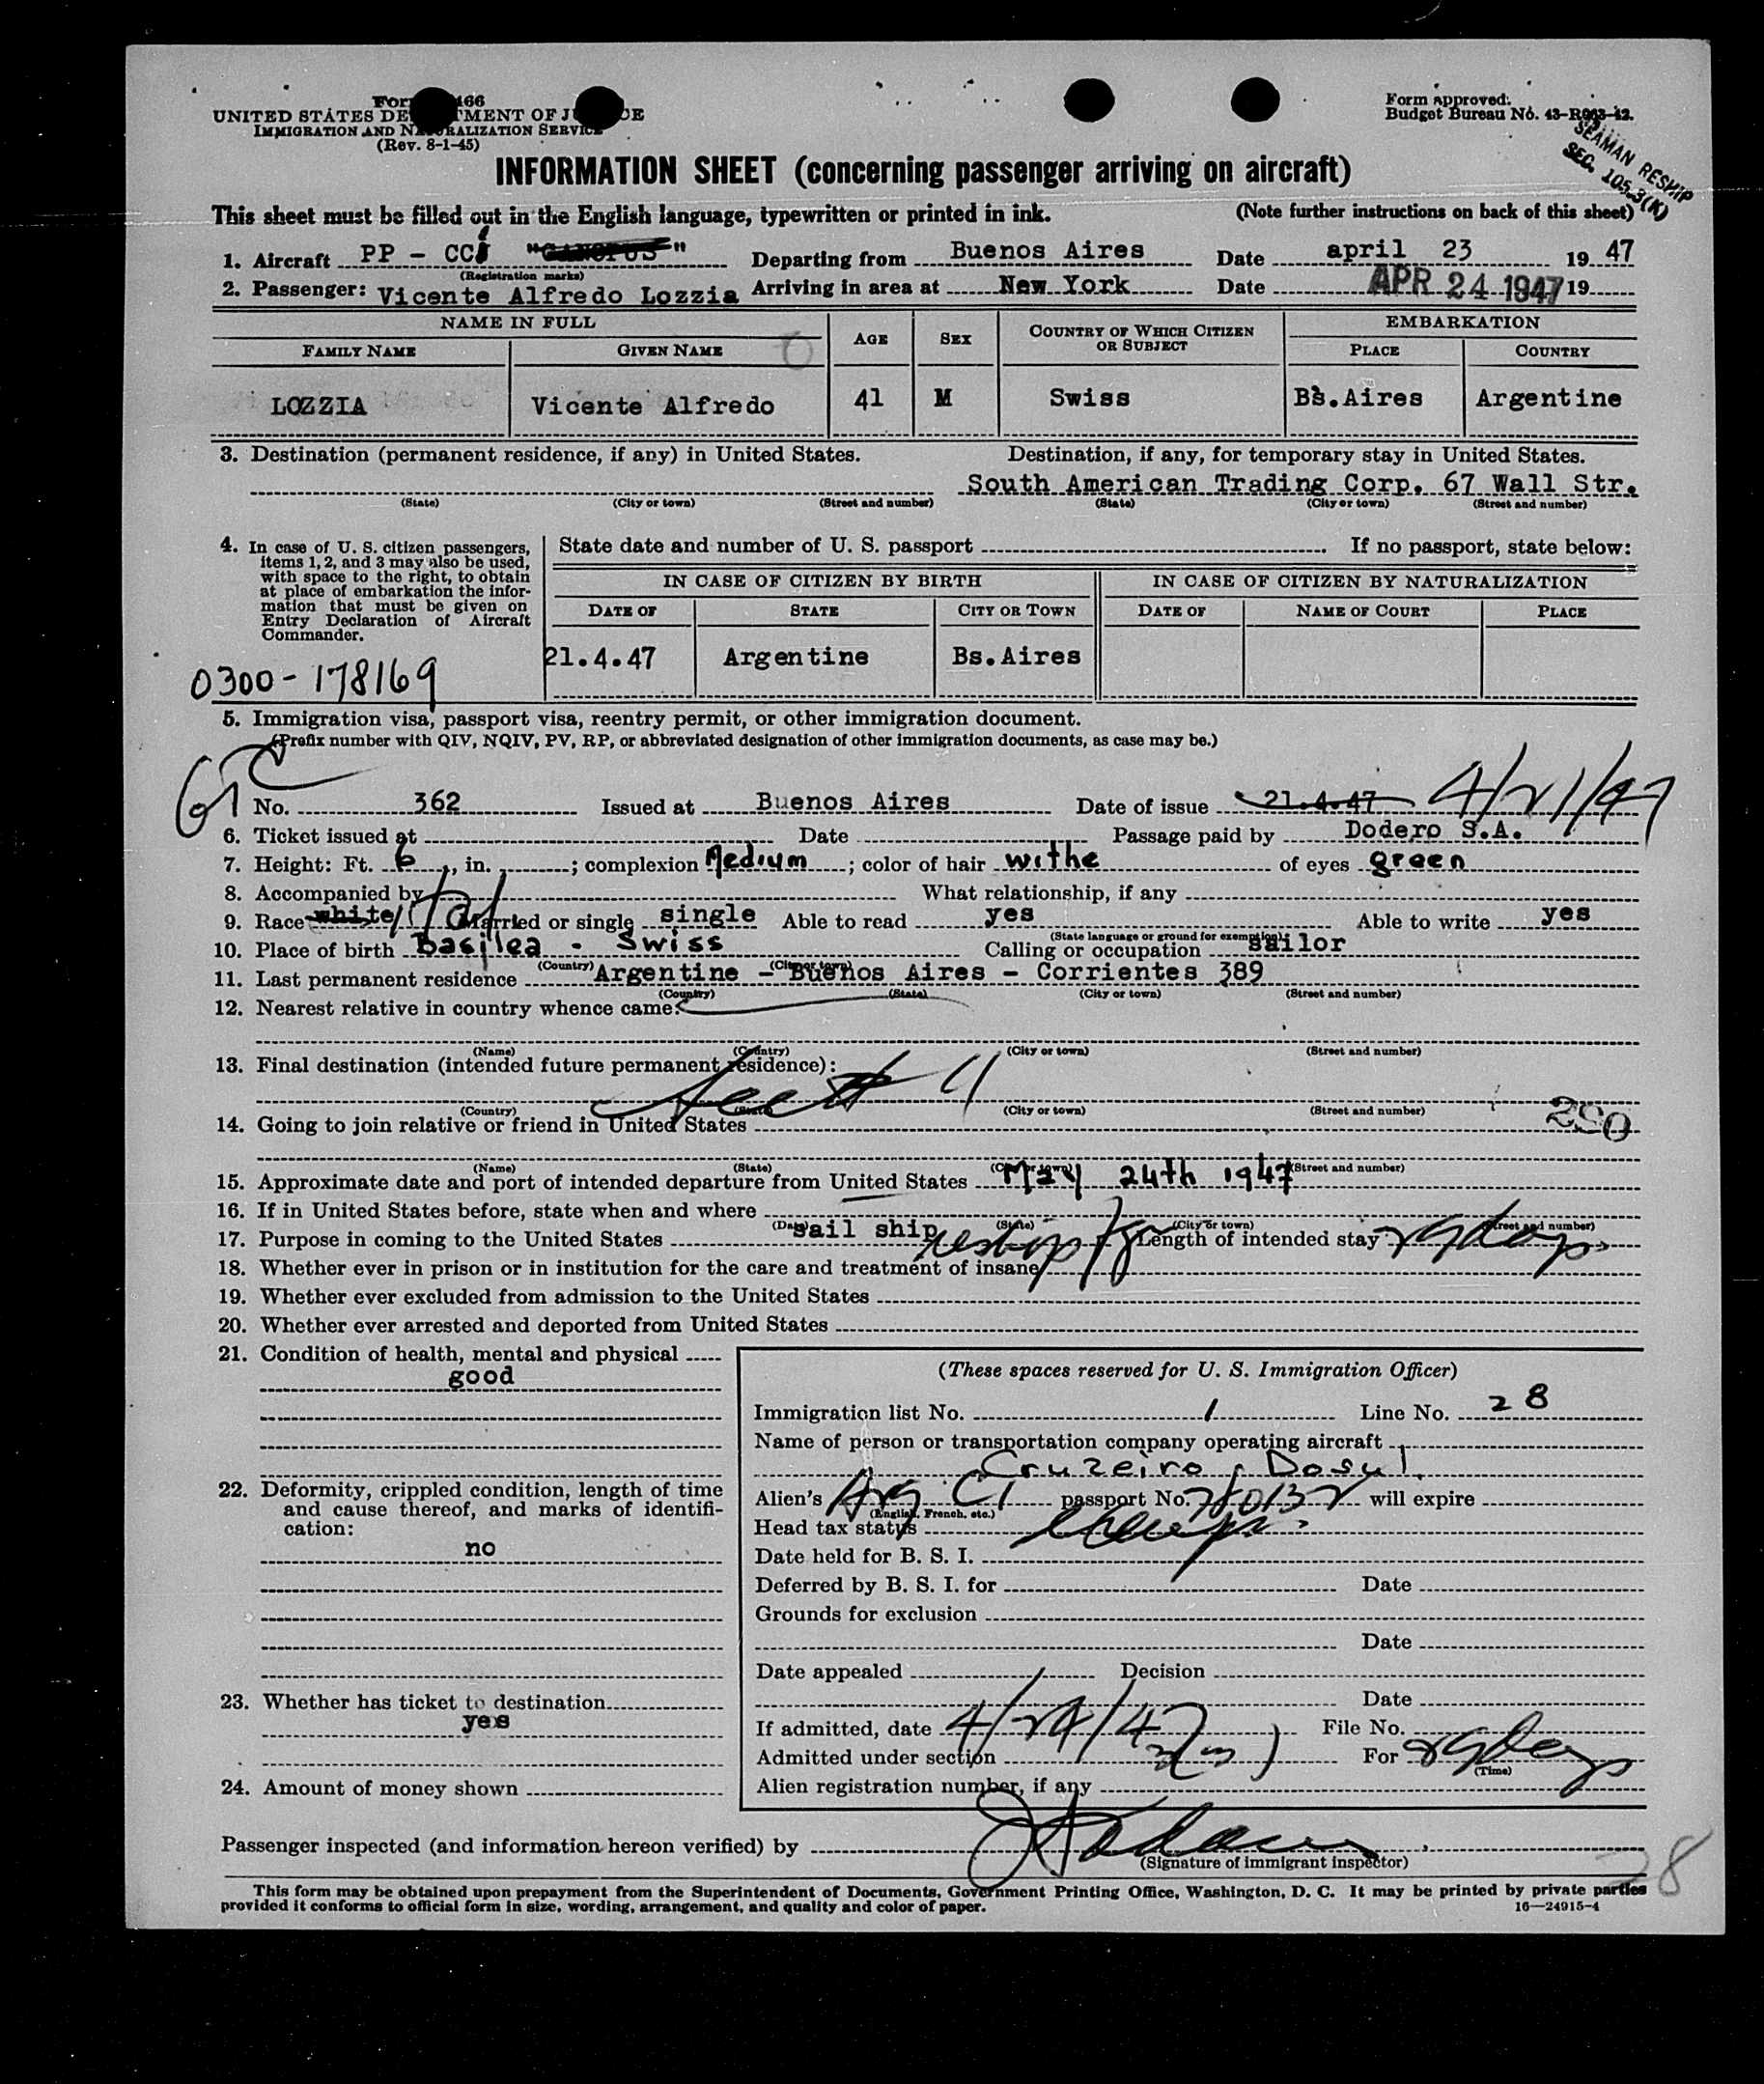 Form 466
UNITED STATES DEPARTMENT OF JUSTICE
IMMIGRATION AND NATURALIZATION SERVICE
(Rev. 8-1-45)
Form approved.
Budget Bureau No. 43-R063-42.
SEAMAN RESHIP
SEC. 105.3(K)
INFORMATION SHEET (concerning passenger arriving on aircraft)
This sheet must be filled out in the English language, typewritten or printed in ink. (Note further instructions on back of this sheet)
1. Aircraft PP - CC "CANOPUS" Departing from Buenos Aires Date april 23 19 47
(Registration marks)
2. Passenger: Vicente Alfredo Lozzia Arriving in area at New York Date APR 24 1947 19
NAME IN FULL AGE SEX COUNTRY OF WHICH CITIZEN OR SUBJECT EMBARKATION
FAMILY NAME GIVEN NAME PLACE COUNTRY
LOZZIA Vicente Alfredo 41 M Swiss Bs.Aires Argentine
3. Destination (permanent residence, if any) in United States. Destination, if any, for temporary stay in United States.
South American Trading Corp. 67 Wall Str.
(State) (City or town) (Street and number) (State) (City or town) (Street and number)
4. In case of U. S. citizen passengers, items 1, 2, and 3 may also be used, with space to the right, to obtain at place of embarkation the information that must be given on Entry Declaration of Aircraft Commander.
State date and number of U. S. passport If no passport, state below:
IN CASE OF CITIZEN BY BIRTH IN CASE OF CITIZEN BY NATURALIZATION
DATE OF STATE CITY OR TOWN DATE OF NAME OF COURT PLACE
21.4.47 Argentine Bs.Aires
0300-178169
5. Immigration visa, passport visa, reentry permit, or other immigration document.
(Prefix number with QIV, NQIV, PV, RP, or abbreviated designation of other immigration documents, as case may be.)
No. 362 Issued at Buenos Aires Date of issue 21.4.47 4/21/47
6. Ticket issued at Date Passage paid by Dodero S.A.
7. Height: Ft. 6, in. ; complexion Medium ; color of hair withe of eyes green
8. Accompanied by What relationship, if any
9. Race white Ital Married or single single Able to read yes Able to write yes
(State language or ground for exemption)
10. Place of birth Basilea - Swiss Calling or occupation sailor
(Country) (City or town)
11. Last permanent residence Argentine - Buenos Aires - Corrientes 389
(Country) (State) (City or town) (Street and number)
12. Nearest relative in country whence came:
(Name) (Country) (City or town) (Street and number)
13. Final destination (intended future permanent residence):
(Country) (State) (City or town) (Street and number)
14. Going to join relative or friend in United States
280
(Name) (State) (City or town) (Street and number)
15. Approximate date and port of intended departure from United States May 24th 1947
16. If in United States before, state when and where
(Date) (State) (City or town) (Street and number)
17. Purpose in coming to the United States sail ship reship Length of intended stay 29 days
18. Whether ever in prison or in institution for the care and treatment of insane
19. Whether ever excluded from admission to the United States
20. Whether ever arrested and deported from United States
21. Condition of health, mental and physical
good
22. Deformity, crippled condition, length of time and cause thereof, and marks of identification:
no
23. Whether has ticket to destination
yes
24. Amount of money shown
(These spaces reserved for U. S. Immigration Officer)
Immigration list No. 1 Line No. 28
Name of person or transportation company operating aircraft
Cruzeiro Dosul
Alien's Arg CI passport No. will expire
(English, French, etc.)
Head tax status
Date held for B. S. I.
Deferred by B. S. I. for Date
Grounds for exclusion
Date
Date appealed Decision
Date
If admitted, date 4/24/47 File No.
Admitted under section 3(5) For 29 days
(Time)
Alien registration number, if any
Passenger inspected (and information hereon verified) by
(Signature of immigrant inspector)
28
This form may be obtained upon prepayment from the Superintendent of Documents, Government Printing Office, Washington, D. C. It may be printed by private parties
provided it conforms to official form in size, wording, arrangement, and quality and color of paper. 16—24915-4